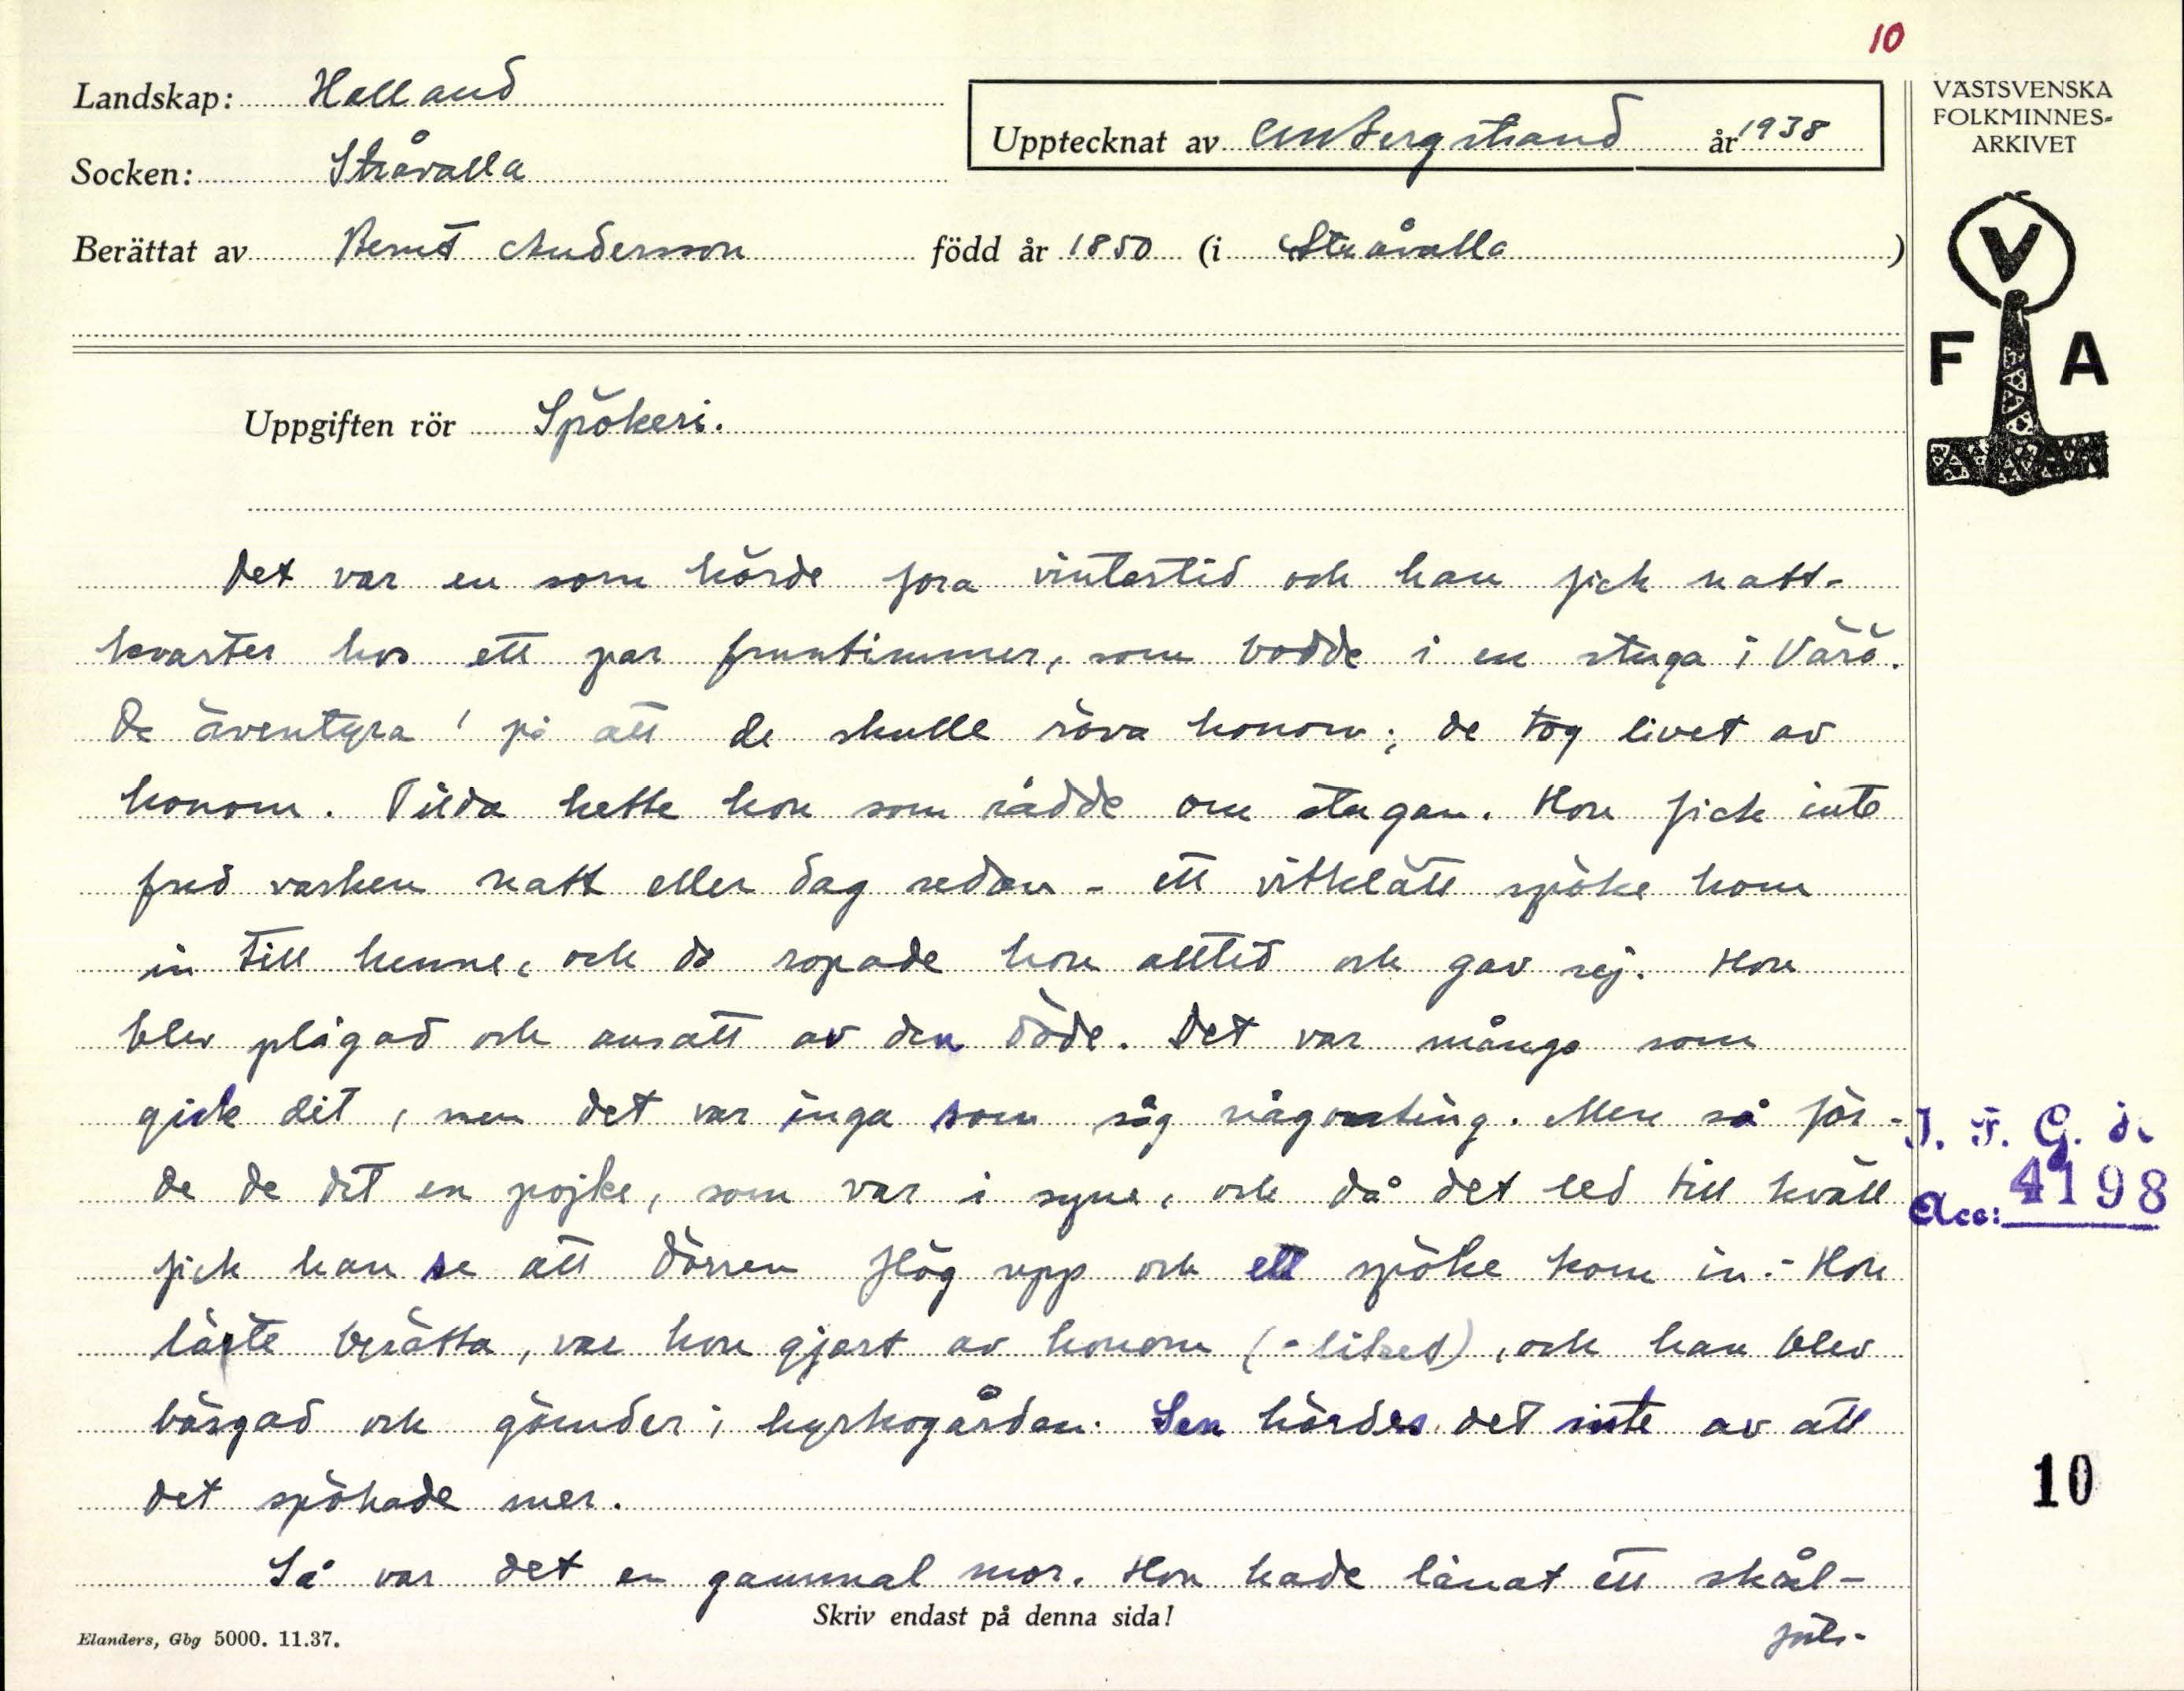 10
Landskap: Halland
Upptecknat av CM Bergstrand år 1938
VÄSTSVENSKA
FOLKMINNES-
ARKIVET
Socken: Stråvalla
Berättat av Bernt Andersson född år 1850 (i Stråvalla)
V
F A
Uppgiften rör Spökeri.
Det var en som körde fora vintertid och han fick natt-
kvarter hos ett par fruntimmer, som bodde i en stuga i Värö.
De äventyra' på att de skulle röva honom; de tog livet av
honom. Tilda hette hon som rådde om stugan. Hon fick inte
fred varken natt eller dag sedan - ett vitklätt spöke kom
in till henne, och då ropade hon alltid och gav sej. Hon
blev plågad och ansatt av den döde. Det var många som
gick dit, men det var inga som såg någonting. Men så för-
de de dit en pojke, som var i syne, och då det led till kväll
fick han se att dörren flög upp och ett spöke kom in. - Hon
läste berätta, var hon gjort av honom (= liket), och han blev
bärgad och gömder i kyrkogården. Sen hördes det inte av att
det spökade mer.
Så var det en gammal mor. Hon hade lånat ett skål-
Skriv endast på denna sida!
Elanders, Gbg 5000. 11.37.
I. F. G. ö.
Acc: 4198
10